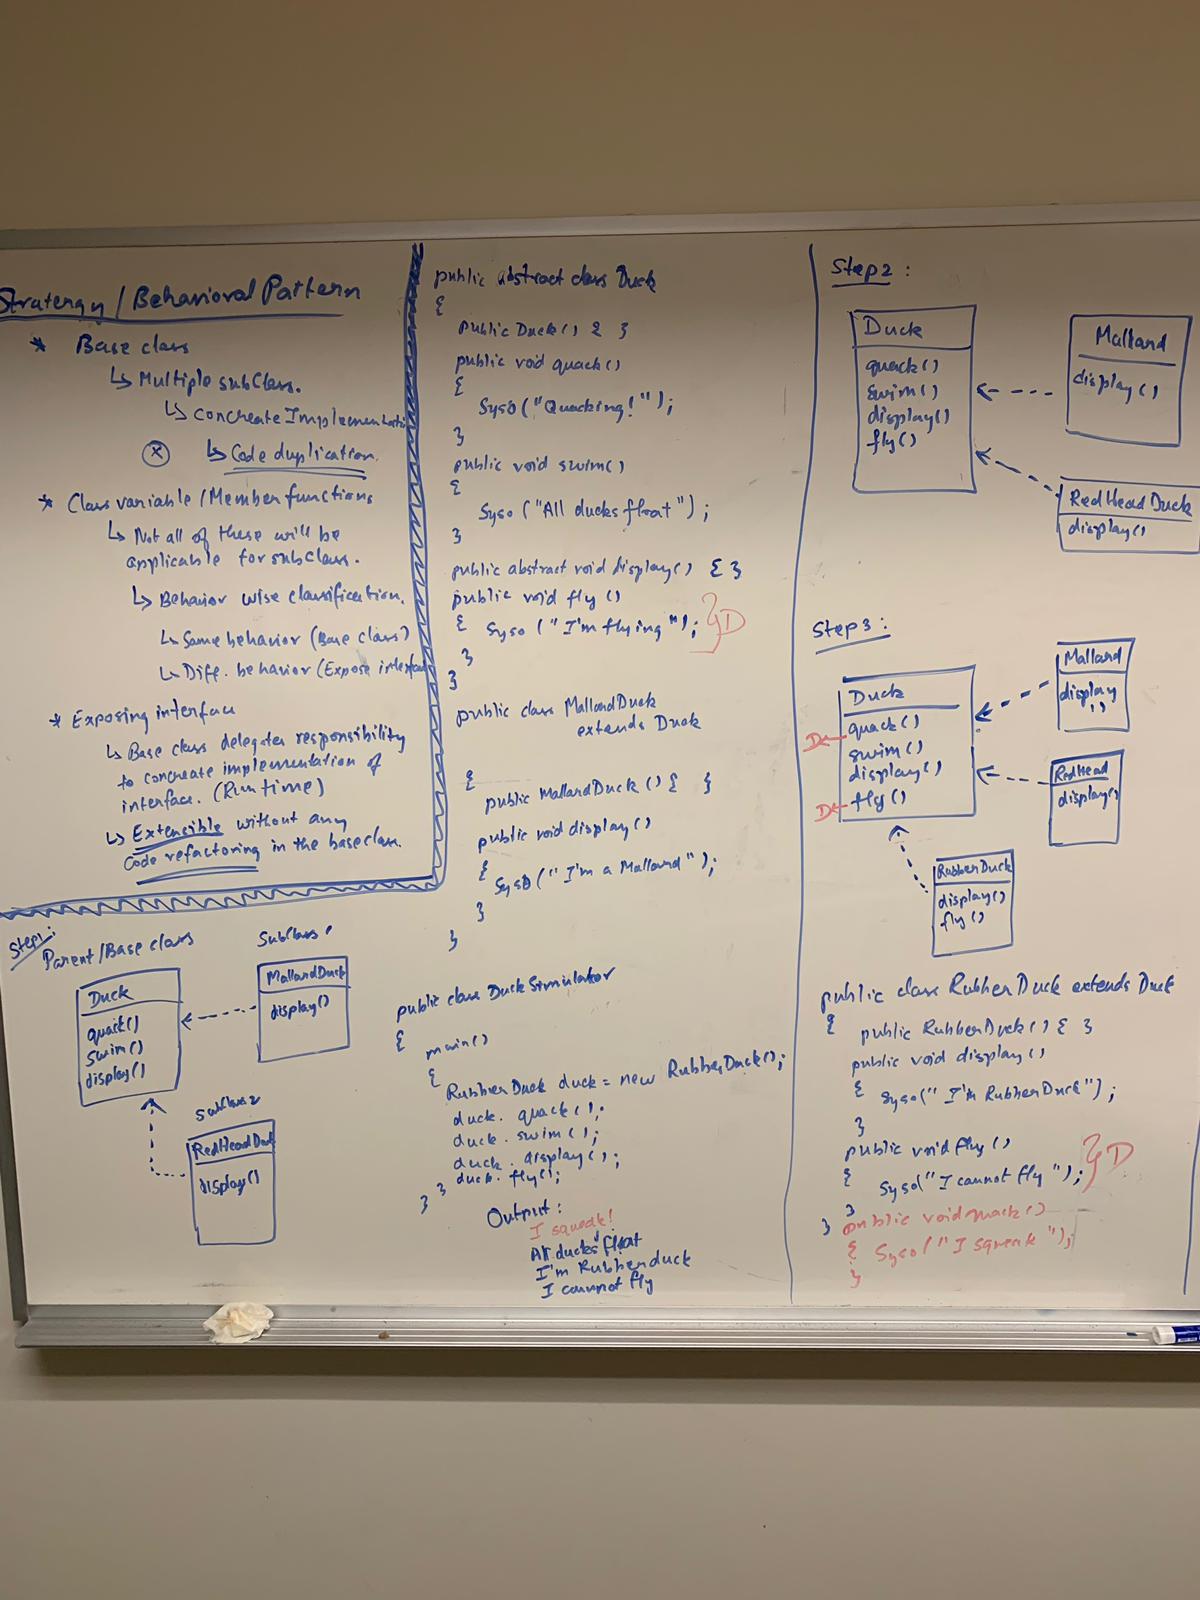 Stratergy / Behavioral Pattern
* Base class
↳ Multiple subClass.
↳ concreate Implementati
ⓧ ↳ Code duplication.
* Class variable / Member functions
↳ Not all of these will be
applicable for subClass.
↳ Behavior wise classification.
↳ Same behavior (Base class)
↳ Diff. behavior (Expose interface
* Exposing interface
↳ Base class delegates responsibility
to concreate implementation of
interface. (Run time)
↳ Extensible without any
Code refactoring in the baseclass.
Step1:
Parent/Base class
Duck
quack()
swim()
display()
SubClass 1
MallardDuck
display()
SubClass 2
RedHeadDuck
display()
public abstract class Duck
{
public Duck() { }
public void quack()
{
Syso("Quacking!");
}
public void swim()
{
Syso ("All ducks float");
}
public abstract void display() { }
public void fly ()
{ Syso ("I'm flying"); } D
}
}
public class MallardDuck
extends Duck
{
public MallardDuck () { }
public void display()
{ Syso (" I'm a Mallard");
}
}
public class Duck Simulator
{
main()
{
RubberDuck duck = new RubberDuck();
duck. quack();
duck. swim();
duck. display();
duck. fly();
} }
Output:
I squeak!
All ducks float
I'm Rubber duck
I cannot fly
Step2:
Duck
quack()
swim()
display()
fly()
Mallard
display()
RedHeadDuck
display()
Step3:
Duck
D← quack()
swim()
display()
D← fly()
Mallard
display
()
RedHead
display()
RubberDuck
display()
fly()
public class RubberDuck extends Duck
{ public RubberDuck() { }
public void display()
{ Syso(" I'm RubberDuck");
}
public void fly()
{ Syso("I cannot fly"); } D
}
} public void quack()
{ Syso("I squeak");
}